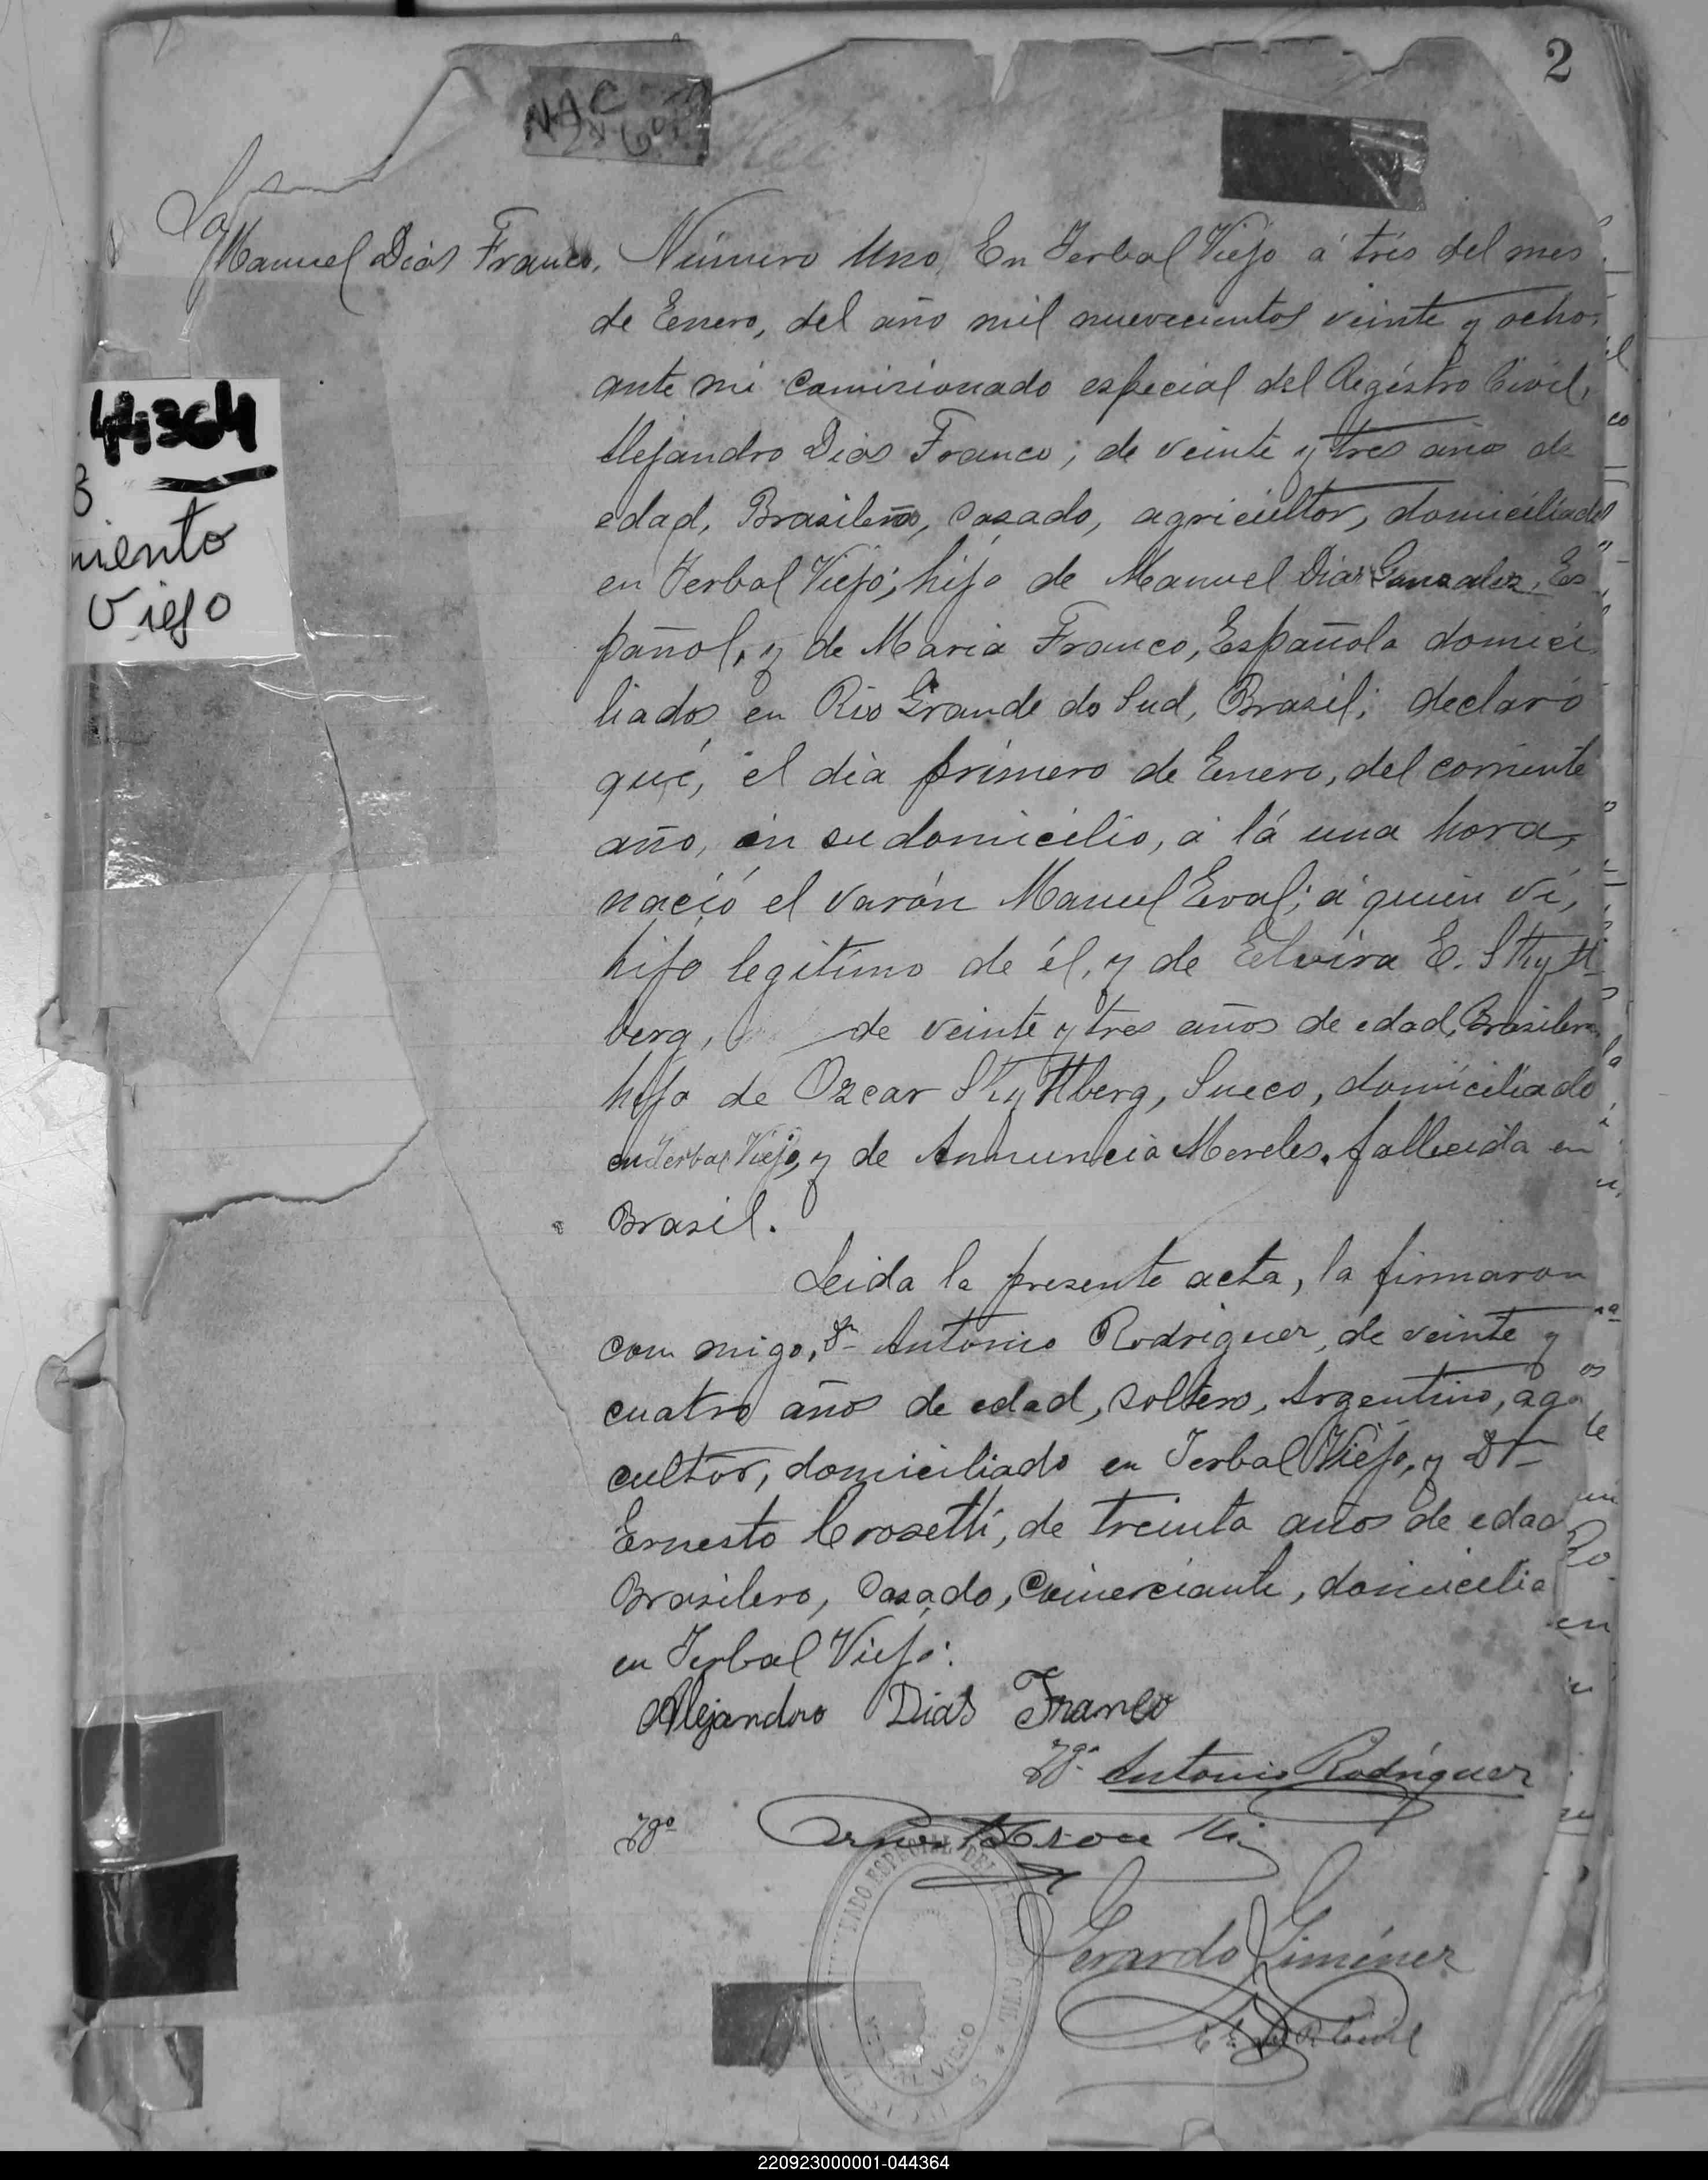 2
NAC
Manuel Dias Franco. Número Uno, En Yerbal Viejo á tres del mes
de Enero, del año mil nuevecientos veinte y ocho,
ante mi comisionado especial del Registro Civil,
Alejandro Dias Franco; de veinte y tres años de
edad, Brasileño, casado, agricultor, domiciliado
en Yerbal Viejo; hijo de Manuel Dias Gonzalez, Es
pañol, y de Maria Franco, Española domici
liados en Rio Grande do Sud, Brasil; declaró
qué, el dia primero de Enero, del corriente
año, en su domicilio, á lá una hora,
nació el varón Manuel Eval; á quien ví,
hijo legitimo de él, y de Elvira E. Skytt
berg, de veinte y tres años de edad, Brasilera
hija de Ozcar Skyttberg, Sueco, domiciliado
en Yerbal Viejo, y de Annuncia Mereles, fallecida en
Brasil.
Leida la presente acta, la firmaron
con migo, Dn Antonio Rodriguez, de veinte y
cuatro años de edad, soltero, Argentino, ag
cultor, domiciliado en Yerbal Viejo, y Dn
Ernesto Crosetti, de treinta años de edad
Brasilero, casado, comerciante, domicilia
en Yerbal Viejo:
Alejandro Dias Franco
Tgo Antonio Rodriguez
Tgo
Gerardo Giménez
44364
miento
Viejo
ESPECIAL DEL CIVIL
VIEJO
220923000001-044364